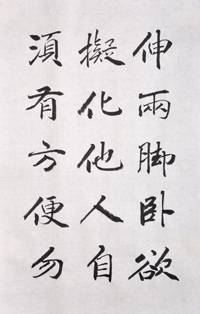 伸兩脚卧欲
擬化他人自
須有方便勿